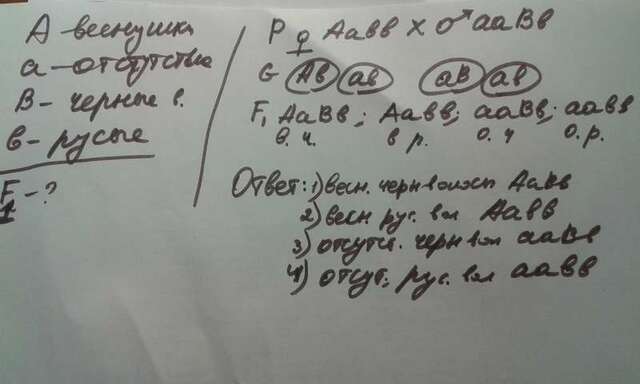 А - веснушки
а - отсутствие
В - черные в.
в - русые
F₁ - ?
P ♀ Аавв х ♂ ааВв
G Ав ав аВ ав
F₁ АаВв; Аавв; ааВв; аавв
в. ч. в р. о. ч о. р.
Ответ: 1) весн. черн волосы АаВв
2) весн. рус. вол Аавв
3) отсутс. черн вол ааВв
4) отсут. рус. вол аавв